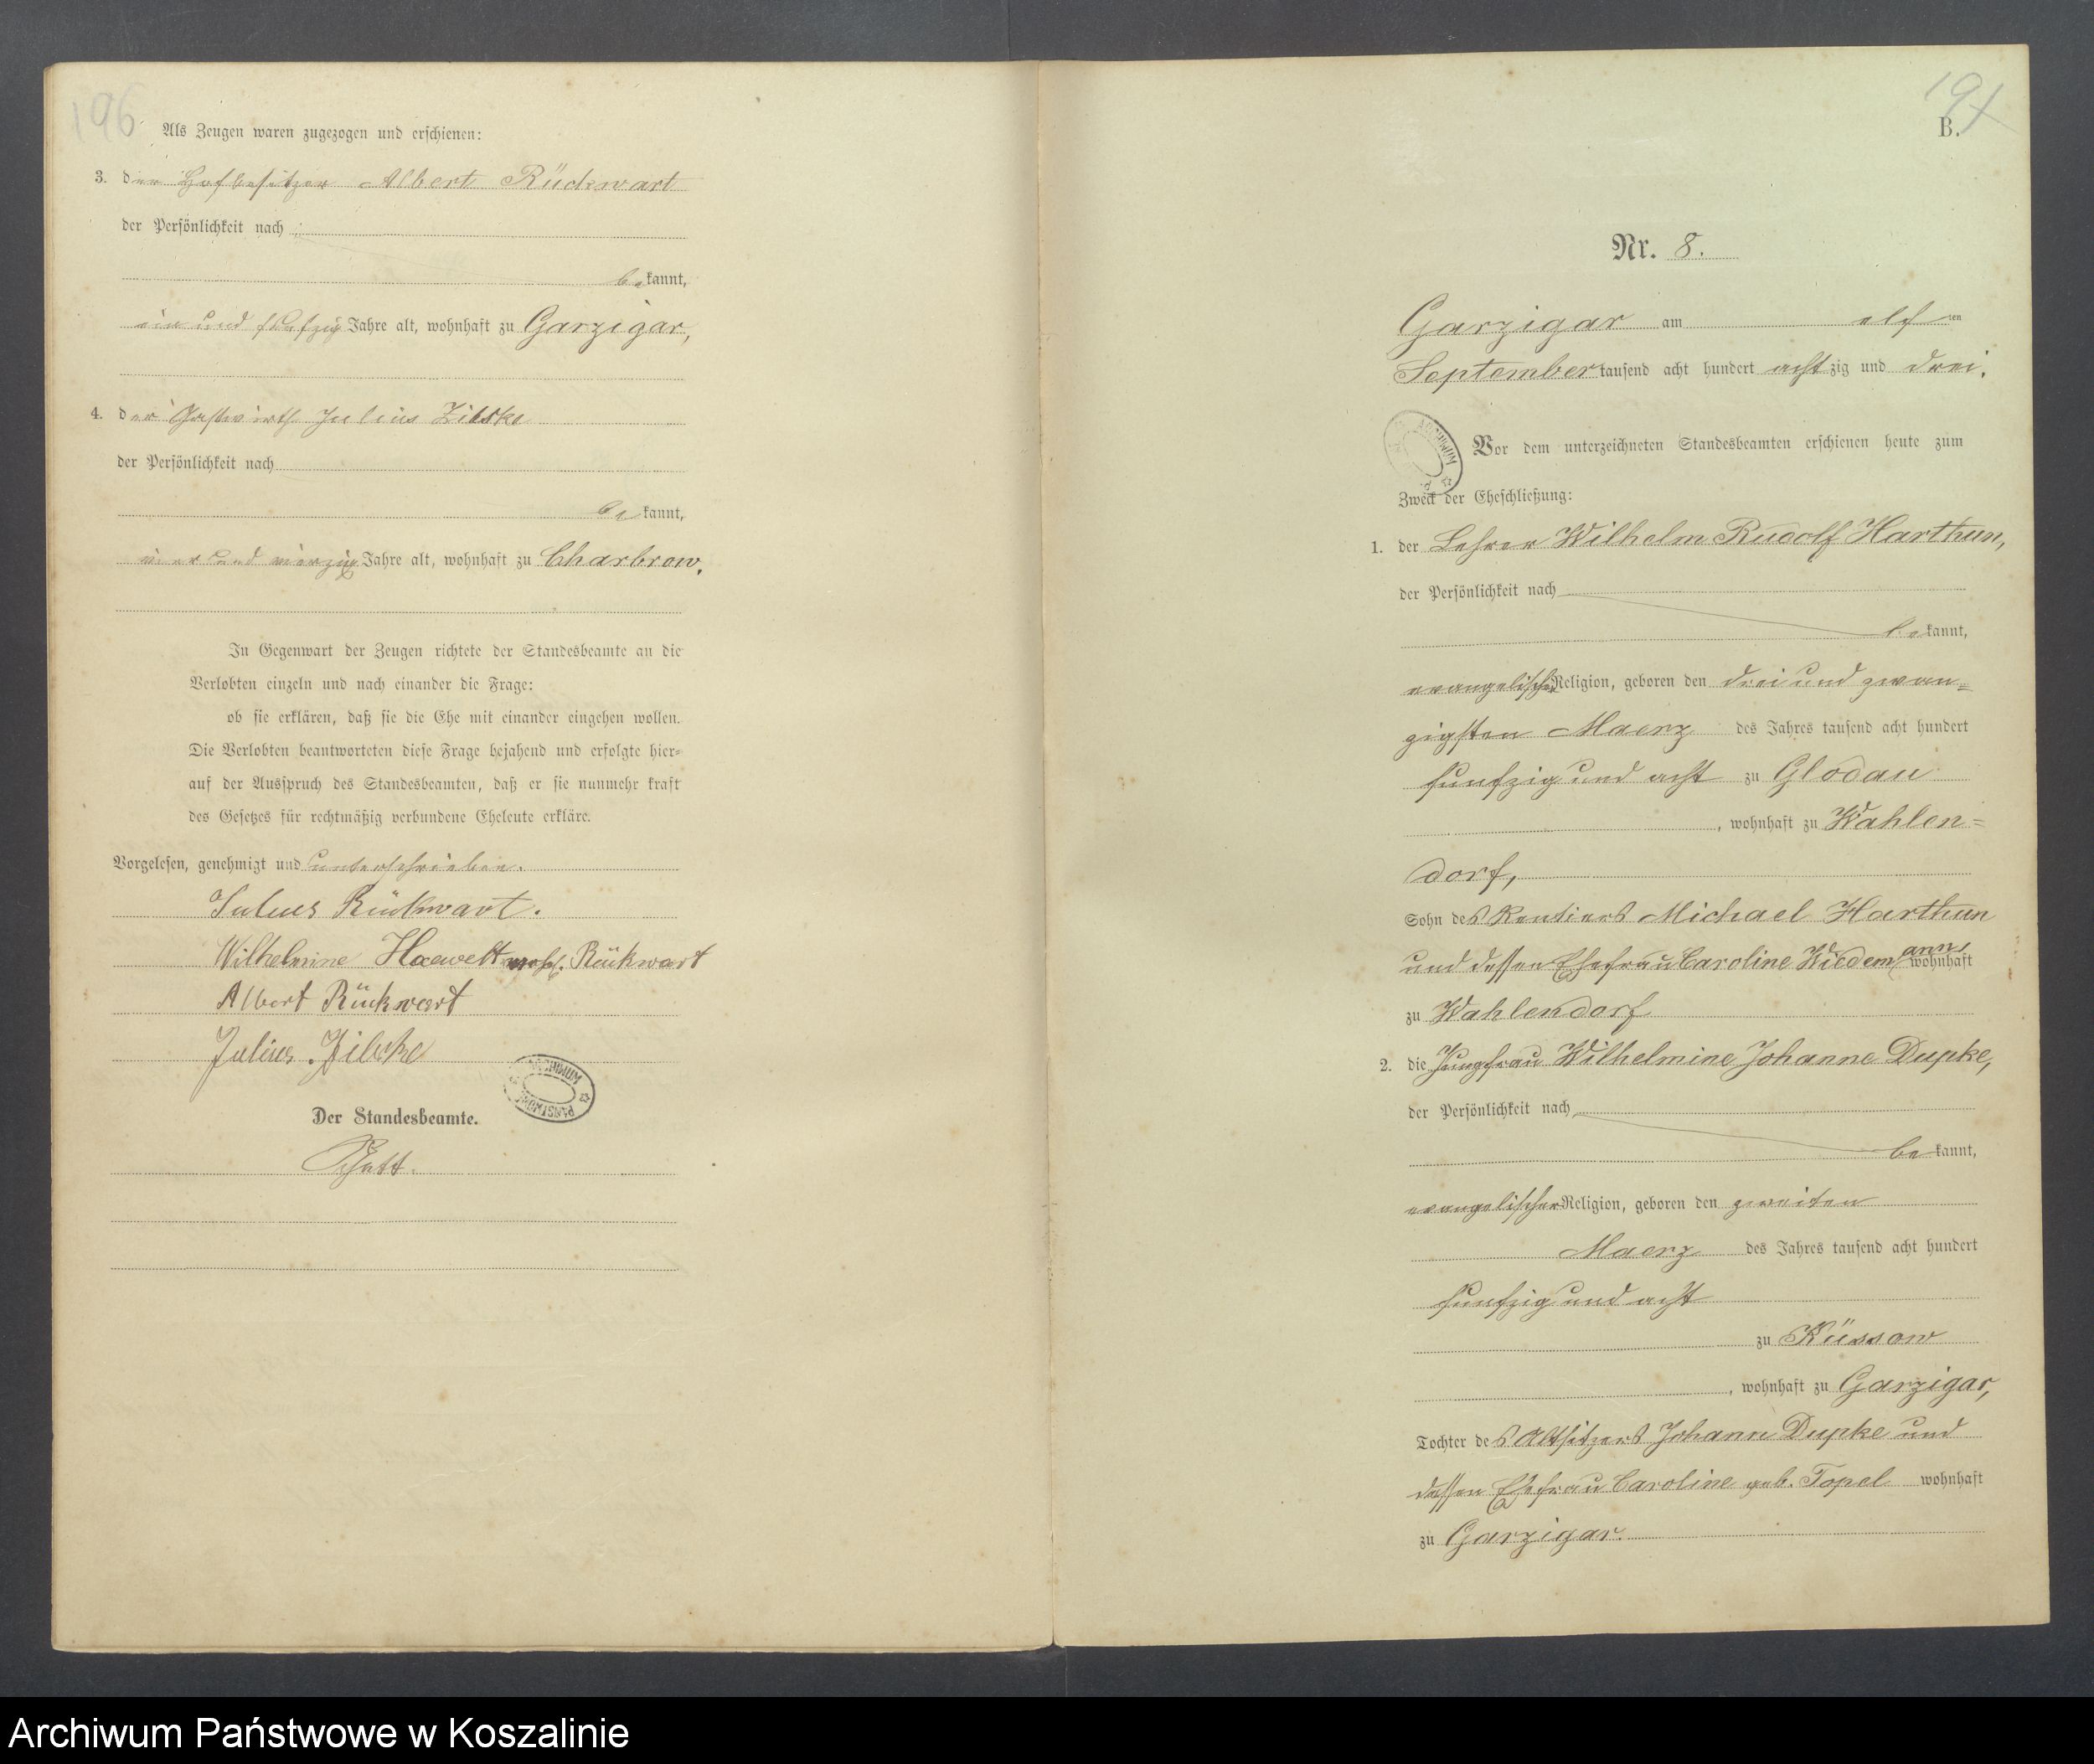 196
Als Zeugen waren zugezogen und erschienen:
3. der Hofbesitzer Albert Rückwart
der Persönlichkeit nach
bekannt,
ein und funfzig Jahre alt, wohnhaft zu Garzigar,
4. der Gastwirth Julius Zilske
der Persönlichkeit nach
bekannt,
vier und vierzig Jahre alt, wohnhaft zu Charbrow.
In Gegenwart der Zeugen richtete der Standesbeamte an die
Verlobten einzeln und nach einander die Frage:
ob sie erklären, daß sie die Ehe mit einander eingehen wollen.
Die Verlobten beantworteten diese Frage bejahend und erfolgte hier=
auf der Ausspruch des Standesbeamten, daß er sie nunmehr kraft
des Gesetzes für rechtmäßig verbundene Eheleute erkläre.
Vorgelesen, genehmigt und unterschrieben.
Julius Rückwart.
Wilhelmine Rückwart
Albert Rückwart
Julius Zilske
Der Standesbeamte.
B.
Nr. 8.
Garzigar am elf ten
September tausend acht hundert achtzig und drei.
Vor dem unterzeichneten Standesbeamten erschienen heute zum
Zweck der Eheschließung:
1. der Lehrer Wilhelm Rudolf Harthun,
der Persönlichkeit nach
bekannt,
evangelischer Religion, geboren den drei und zwan=
zigsten Maerz des Jahres tausend acht hundert
funfzig und acht zu Glodau
, wohnhaft zu Wahlen=
dorf,
Sohn des Rentiers Michael Harthun
und dessen Ehefrau Caroline Wiedemann, wohnhaft
zu Wahlendorf
2. die Jungfrau Wilhelmine Johanne Dupke,
der Persönlichkeit nach
bekannt,
evangelischer Religion, geboren den zweiten
Maerz des Jahres tausend acht hundert
funfzig und acht
zu Küssow
, wohnhaft zu Garzigar,
Tochter des Altsitzers Johann Dupke und
dessen Ehefrau Caroline geb. Topel wohnhaft
zu Garzigar.
Archiwum Państwowe w Koszalinie